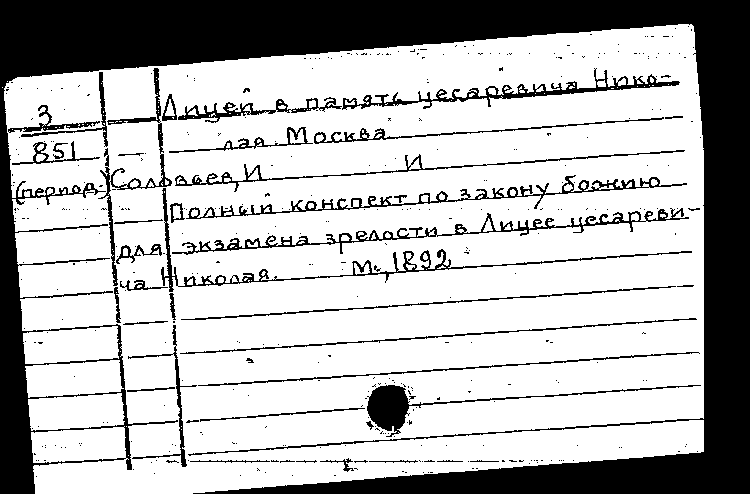 З Лицей в память цесаревича Нико-
лая. Москва
851
(период.) Соловьев, И И
Полный конспект по закону божию
для экзамена зрелости в Лицее цесареви-
ча Николая. М., 1892